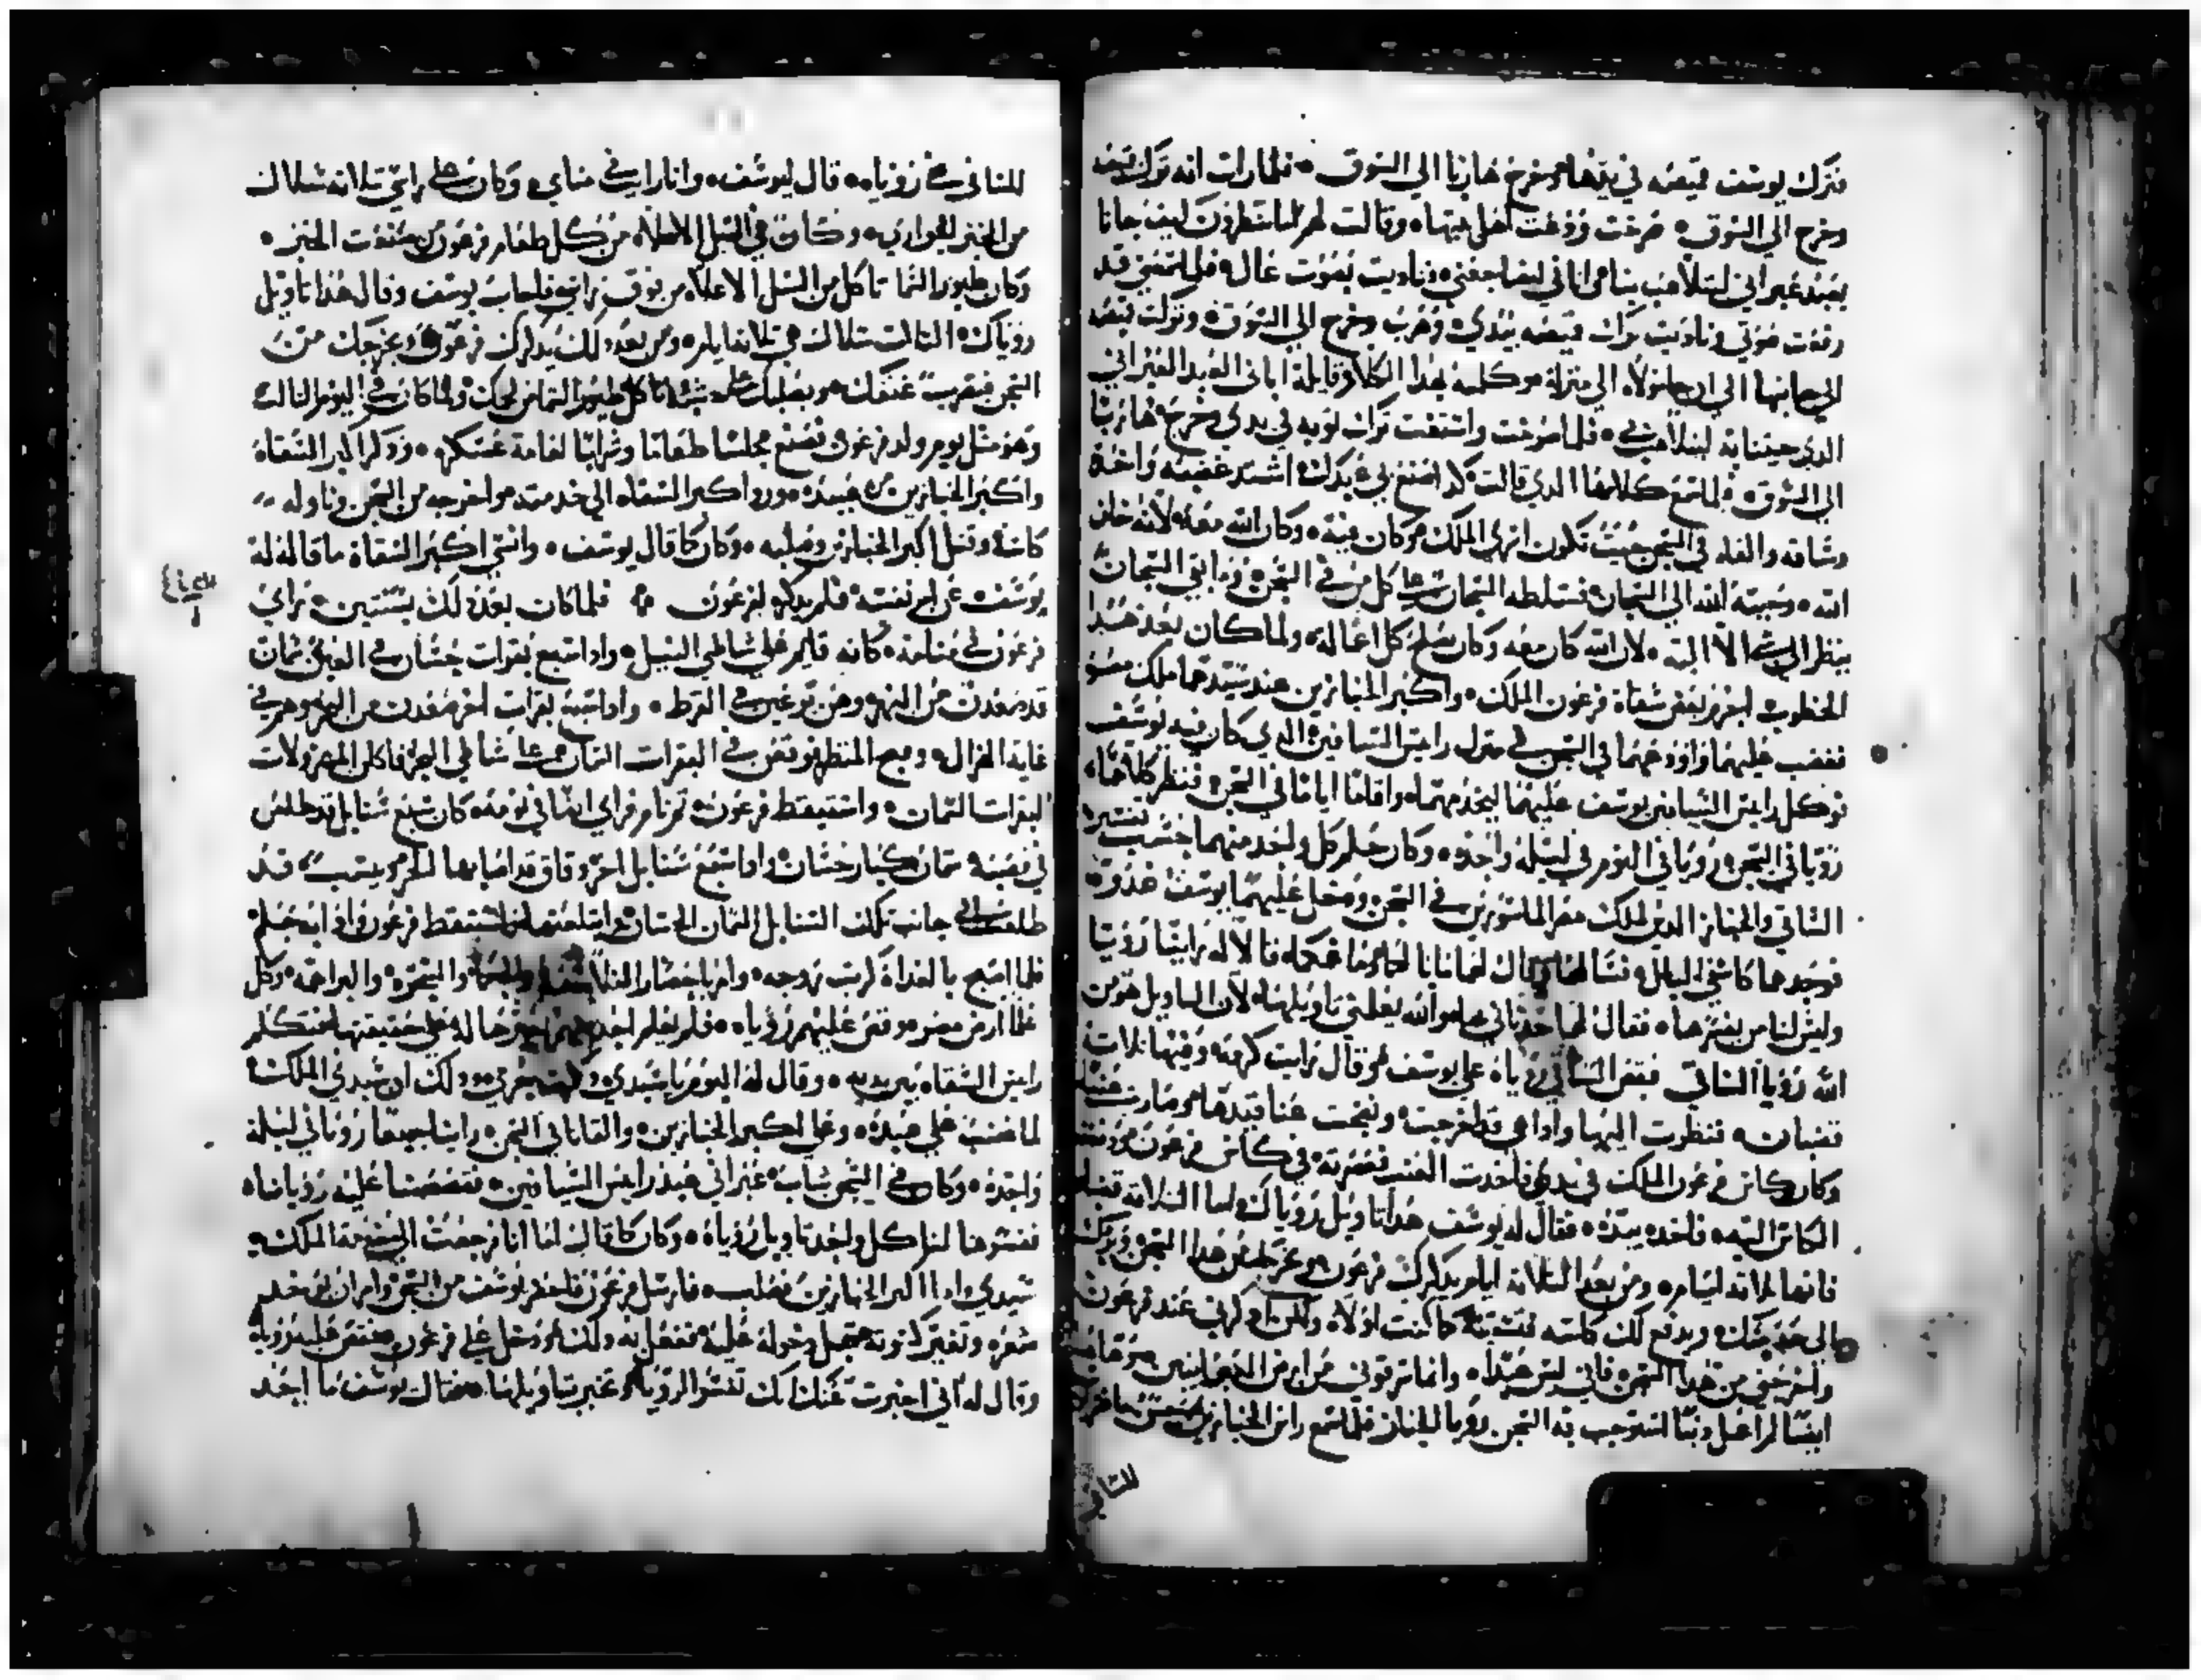 فترك يوسف قميصه في يدها وخرج هاربا الي السوق فلما رات انه ترك قميصه
وخرج الي السوق صرخت ودعت اهل بيتها وقالت لهم اما تنظرون كيف جانا
بعبد عبراني ليتلاعب بنا انه اتاني ليضاجعني وناديت بصوت عال فلما سمعني قد
رفعت صوتي وناديت ترك قميصه بيدي وهرب وخرج الي السوق وتركت قميصه
الي جانبها الي ان جا مولاه الي منزله وكلمته بهذا الكلام قايلة اتاني العبد العبراني
الدي جيتنا به ليتلاعب بي فلما صرخت واستغت ترك توبه في يدي وخرج هاربا
الي السوق فلما سمع كلامها الدي قالت كدا صنع بي عبدك اشتد غضبه واخده
وساقه والقاه في السجن حيت تكون اسري الملك وكان فيه وكان الله معه لانه خاف
الله وحببه الله الي السجان فسلطه السجان علي كل من في السجن وما بقي السجان
ينظر الي شي الا اليه لان الله كان معه وكان ينجح كل اعماله ولما كان بعد هدا
الخطوب اجرم بعض سقاة فرعون الملك واكبر الخبازين عند سيدهما ملك مصر
فغضب عليهما واودعهما في السجن في منزل راس السيافين الدي كان فيه يوسف
فوكل رايس السيافين يوسف عليهما ليخدمهما واقاما اياما في السجن فنظر كلاهما
رويا في السجن رويا في النوم في ليلة واحدة وكان حلم كل واحد منهما بحسب تفسيره
الساقي والخباز الدين لملك مصر الماسورين في السجن ودخل عليهما يوسف غدوة
فوجدهما كاسفي البال فسالهما وقال لهما ما بالكما قالا له راينا رويا
وليس لنا من يفسرها فقال لهما حدتاني بها والله يعلمني تاويلها لان التاويل هو من
الله رويا الساقي فقص الساقي روياه علي يوسف وقال رايت كرمة وفيها تلات
قضبان فنظرت اليها وادا هي قد اخرجت ونضجت عناقيدها وصارت عنبا
وكان كاس فرعون الملك في يدي فاخدت العنب فعصرته في كاس فرعون ودفعت
الكاس اليه فاخده بيده فقال له يوسف هدا تاويل روياك اما التلاتة قضبان
فانها تلاتة ايام ومن بعد التلاتة ايام يدكرك فرعون ويخرجك من هدا السجن ويردك
الي خدمتك ويدفع لك كاسه فتسقيه كما كنت اولا ولكن ادكرني عند فرعون
واخرجني من هدا السجن فاني لست عبدا وانما سرقوني من ارض العبرانيين وهاهنا
ايضا لم اعمل دنبا استوجب به السجن رويا الخباز فلما سمع راس الخبازين
للساقي
للساقي في روياه قال ليوسف وانا رايت في منامي وكان علي راسي تلاتة سلال
من الخبز الحواري وكان في السل الاعلا من كل طعام فرعون من صنعت الخبز
وكان طيور السما تاكل من السل الاعلا من فوق راسي فاجاب يوسف وقال هدا تاويل
روياك التلات سلال هي تلاتة ايام ومن بعد دلك يدكرك فرعون ويخرجك من
السجن فيضرب عنقك ويصلبك علي خشبة وتاكل طيور السما من لحمك ولما كان في اليوم التالت
وهو متل يوم ولد فرعون فصنع مجلسا طعاما وشرابا لعامة عسكره ودكر اكبر السقاة
واكبر الخبازين من عبيده ورد اكبر السقاه الي خدمته واخرجه من السجن وناوله
كاسة وقتل اكبر الخبازين وصلبه وكان كما قال يوسف وانسي اكبر السقاة ما قاله له
يوسف عن امر نفسه فلم يدكره لفرعون فلما كان بعد دلك بسنتين راي
فرعون في منامه كانه قايم علي شاطي النيل وادا سبع بقرات حسان في العين سمان
قد صعدن من النهر وهن يرعين في القرط وادا سبعة بقرات اخر صعدن من النهر وهن في
غاية الهزال وقبح المنظر فوقفن في البقرات السمان علي شاطي البحر فاكلن المهزولات
البقرات السمان واستيقظ فرعون تم نام فراي ايضا في نومه كان سبع سنابل قد طلعن
في قصبة سمان كبار حسان وادا سبع سنابل اخر دقاق قد اصابها الحر ويبست قد
طلعت الي جانب تلك السنابل السمان الحسان وابتلعتها فاستيقظ فرعون وادا به حلم
فلما اصبح بالغداة كربت روحه وامر باحضار الفلاسفة والحكما والسحرة والبراهمة وكل
علما ارض مصر وقص عليهم روياه فلم يعلم احد منهم يخبرها له علي حقيقتها فتكلم
رايس السقاه بين يديه وقال له اليوم يا سيدي ان سيدي الملك
لما غضب علي عبده وعلي اكبر الخبازين والقانا في السجن راينا جميعا رويا في ليلة
واحدة وكان في السجن شاب عبراني عبد رايس السيافين فقصصنا عليه رويانا
ففسرها لنا كل واحد تاويل روياه وكان كما قال لنا انا فرجعت الي خدمة الملك
سيدي واما اكبر الخبازين فصلب فارسل فرعون فاحضر يوسف من السجن وامر ان يوخد
شعره وتغير كسوته ويجعل دخوله عليه ففعل به دلك ودخل علي فرعون فقص عليه روياه
وقال له اني اخبرت عنك انك تفسر الرويا وتخبر بتاويلها فقال يوسف ما احد